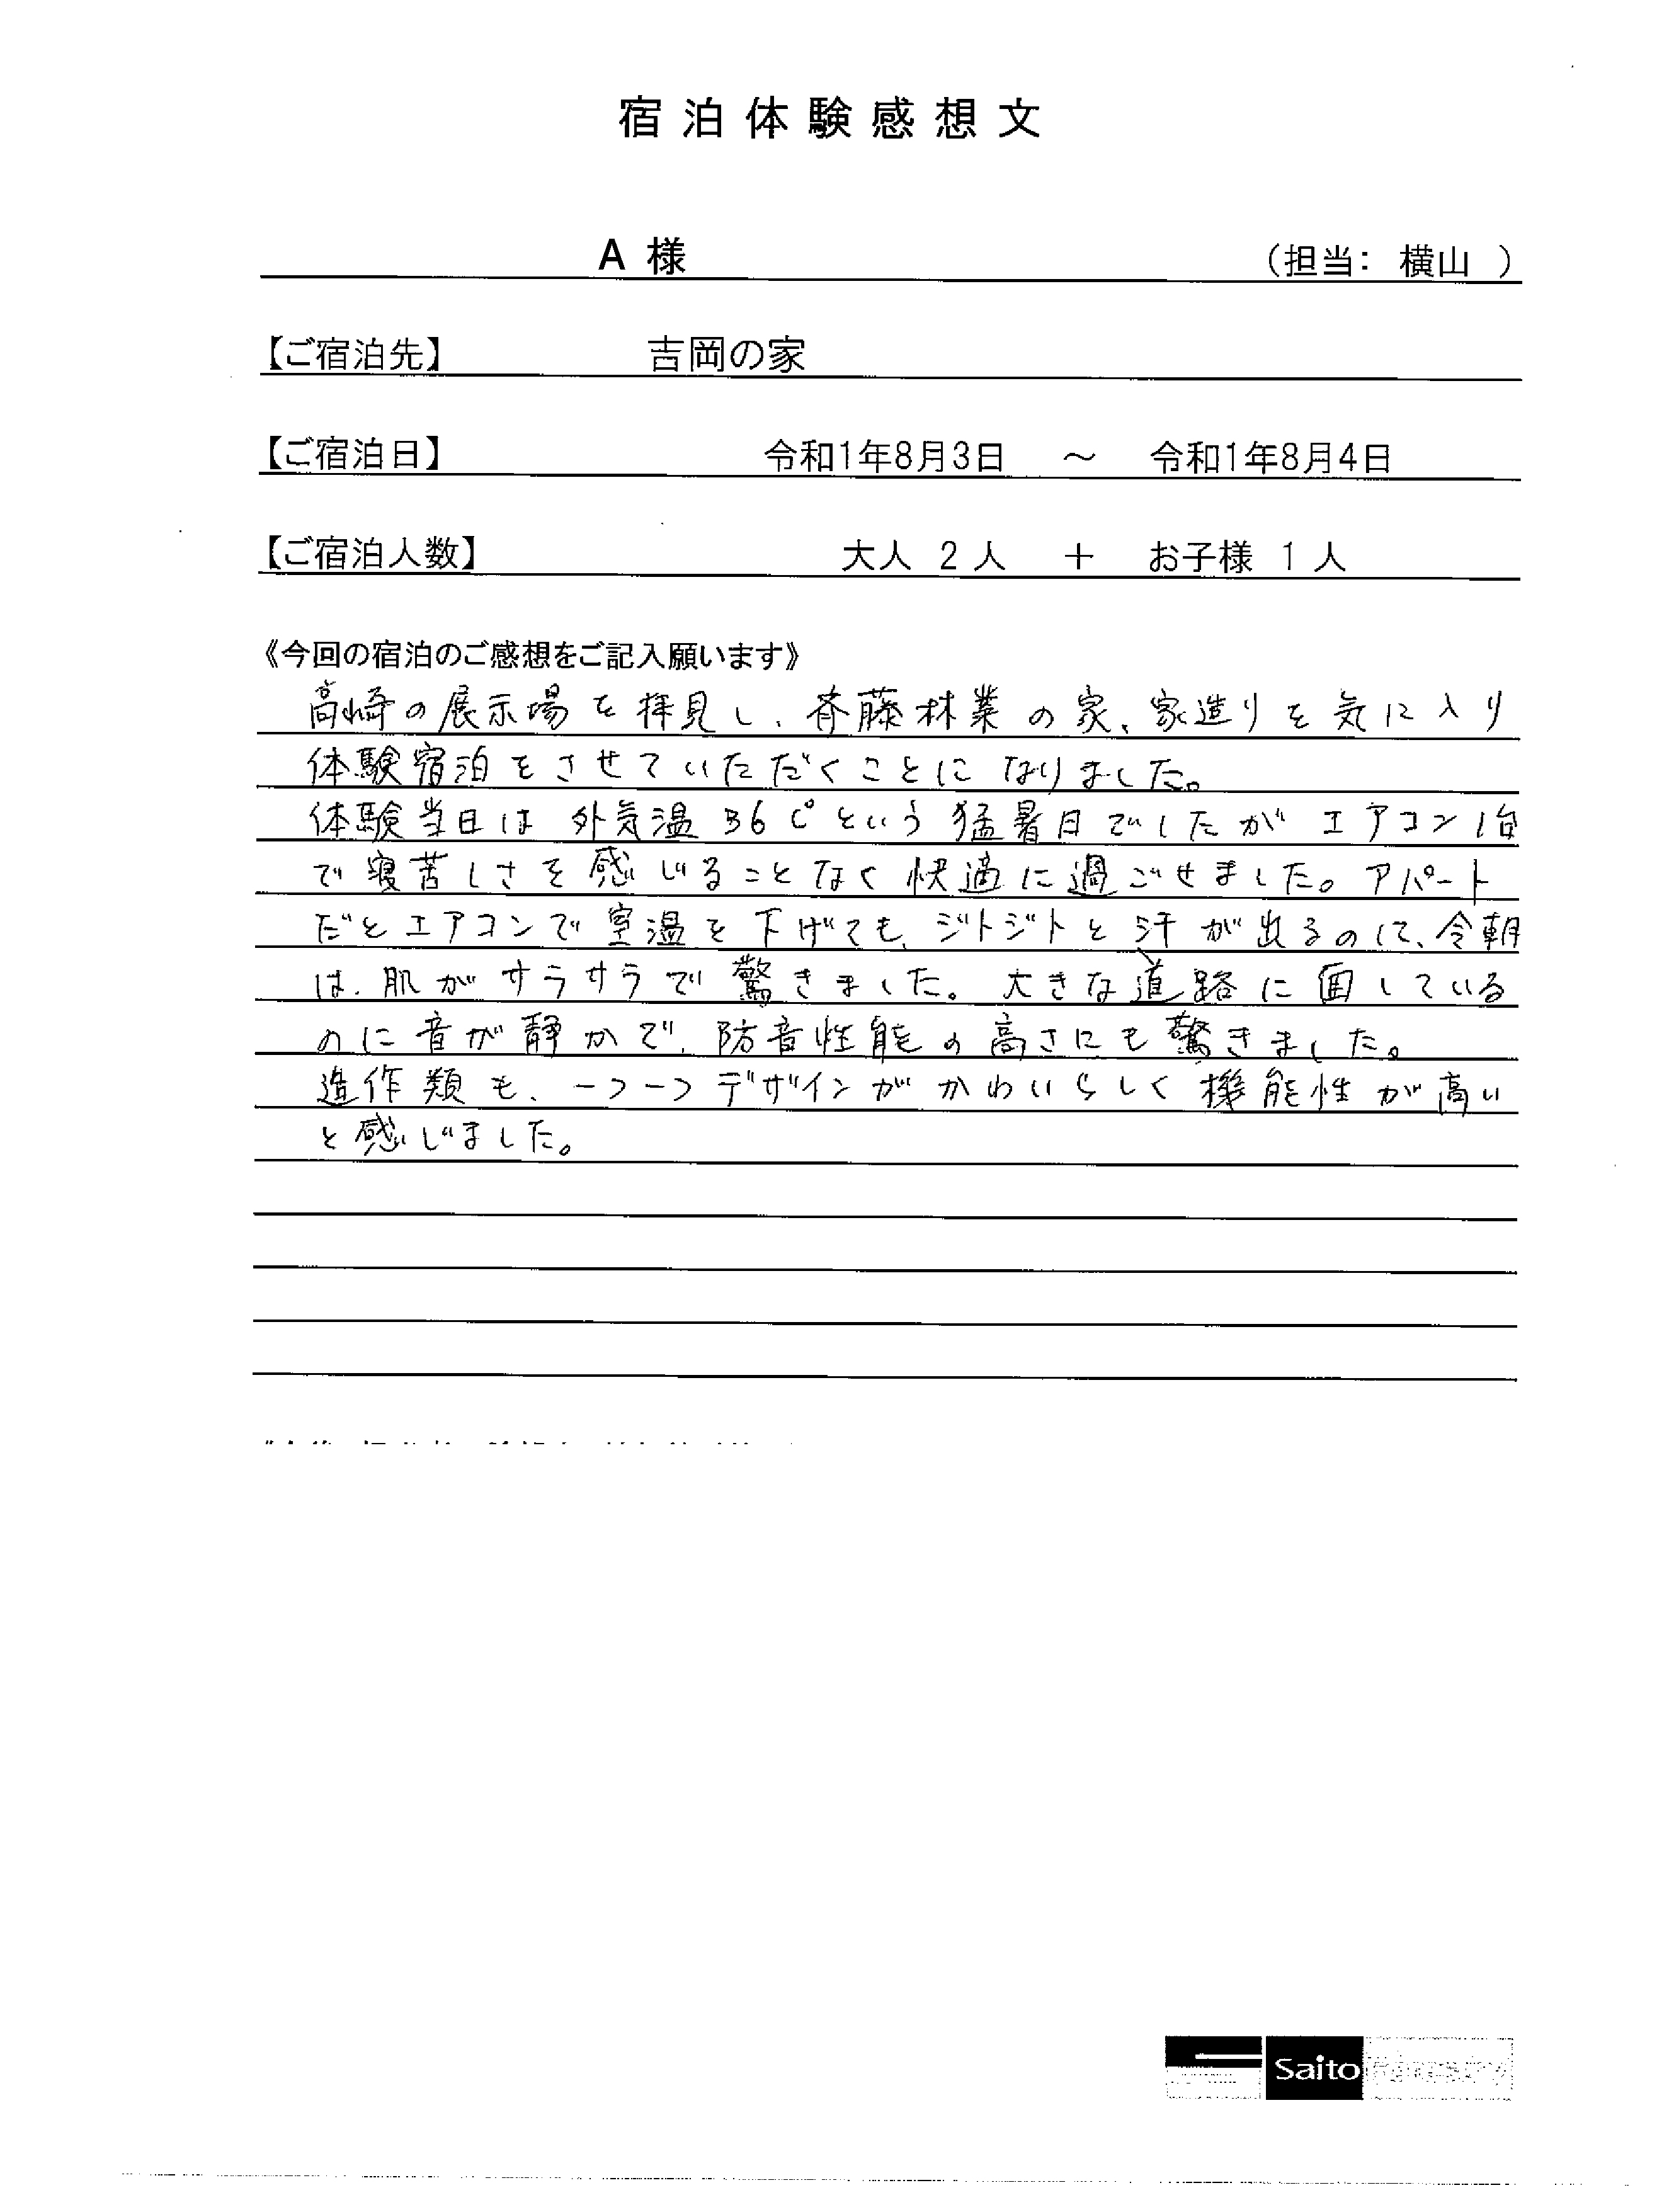 宿泊体験感想文
A 様 （担当： 横山 ）
【ご宿泊先】 吉岡の家
【ご宿泊日】 令和1年8月3日 ～ 令和1年8月4日
【ご宿泊人数】 大人 2 人 ＋ お子様 1 人
《今回の宿泊のご感想をご記入願います》
高崎の展示場を拝見し、斉藤林業の家、家造りを気に入り
体験宿泊をさせていただくことになりました。
体験当日は外気温36℃という猛暑日でしたがエアコン1台
で寝苦しさを感じることなく快適に過ごせました。アパート
だとエアコンで室温を下げても、ジトジトと汗が出るのに、今朝
は、肌がサラサラで驚きました。大きな道路に面している
のに音が静かで、防音性能の高さにも驚きました。
造作類も、一つ一つデザインがかわいらしく機能性が高い
と感じました。
Saito